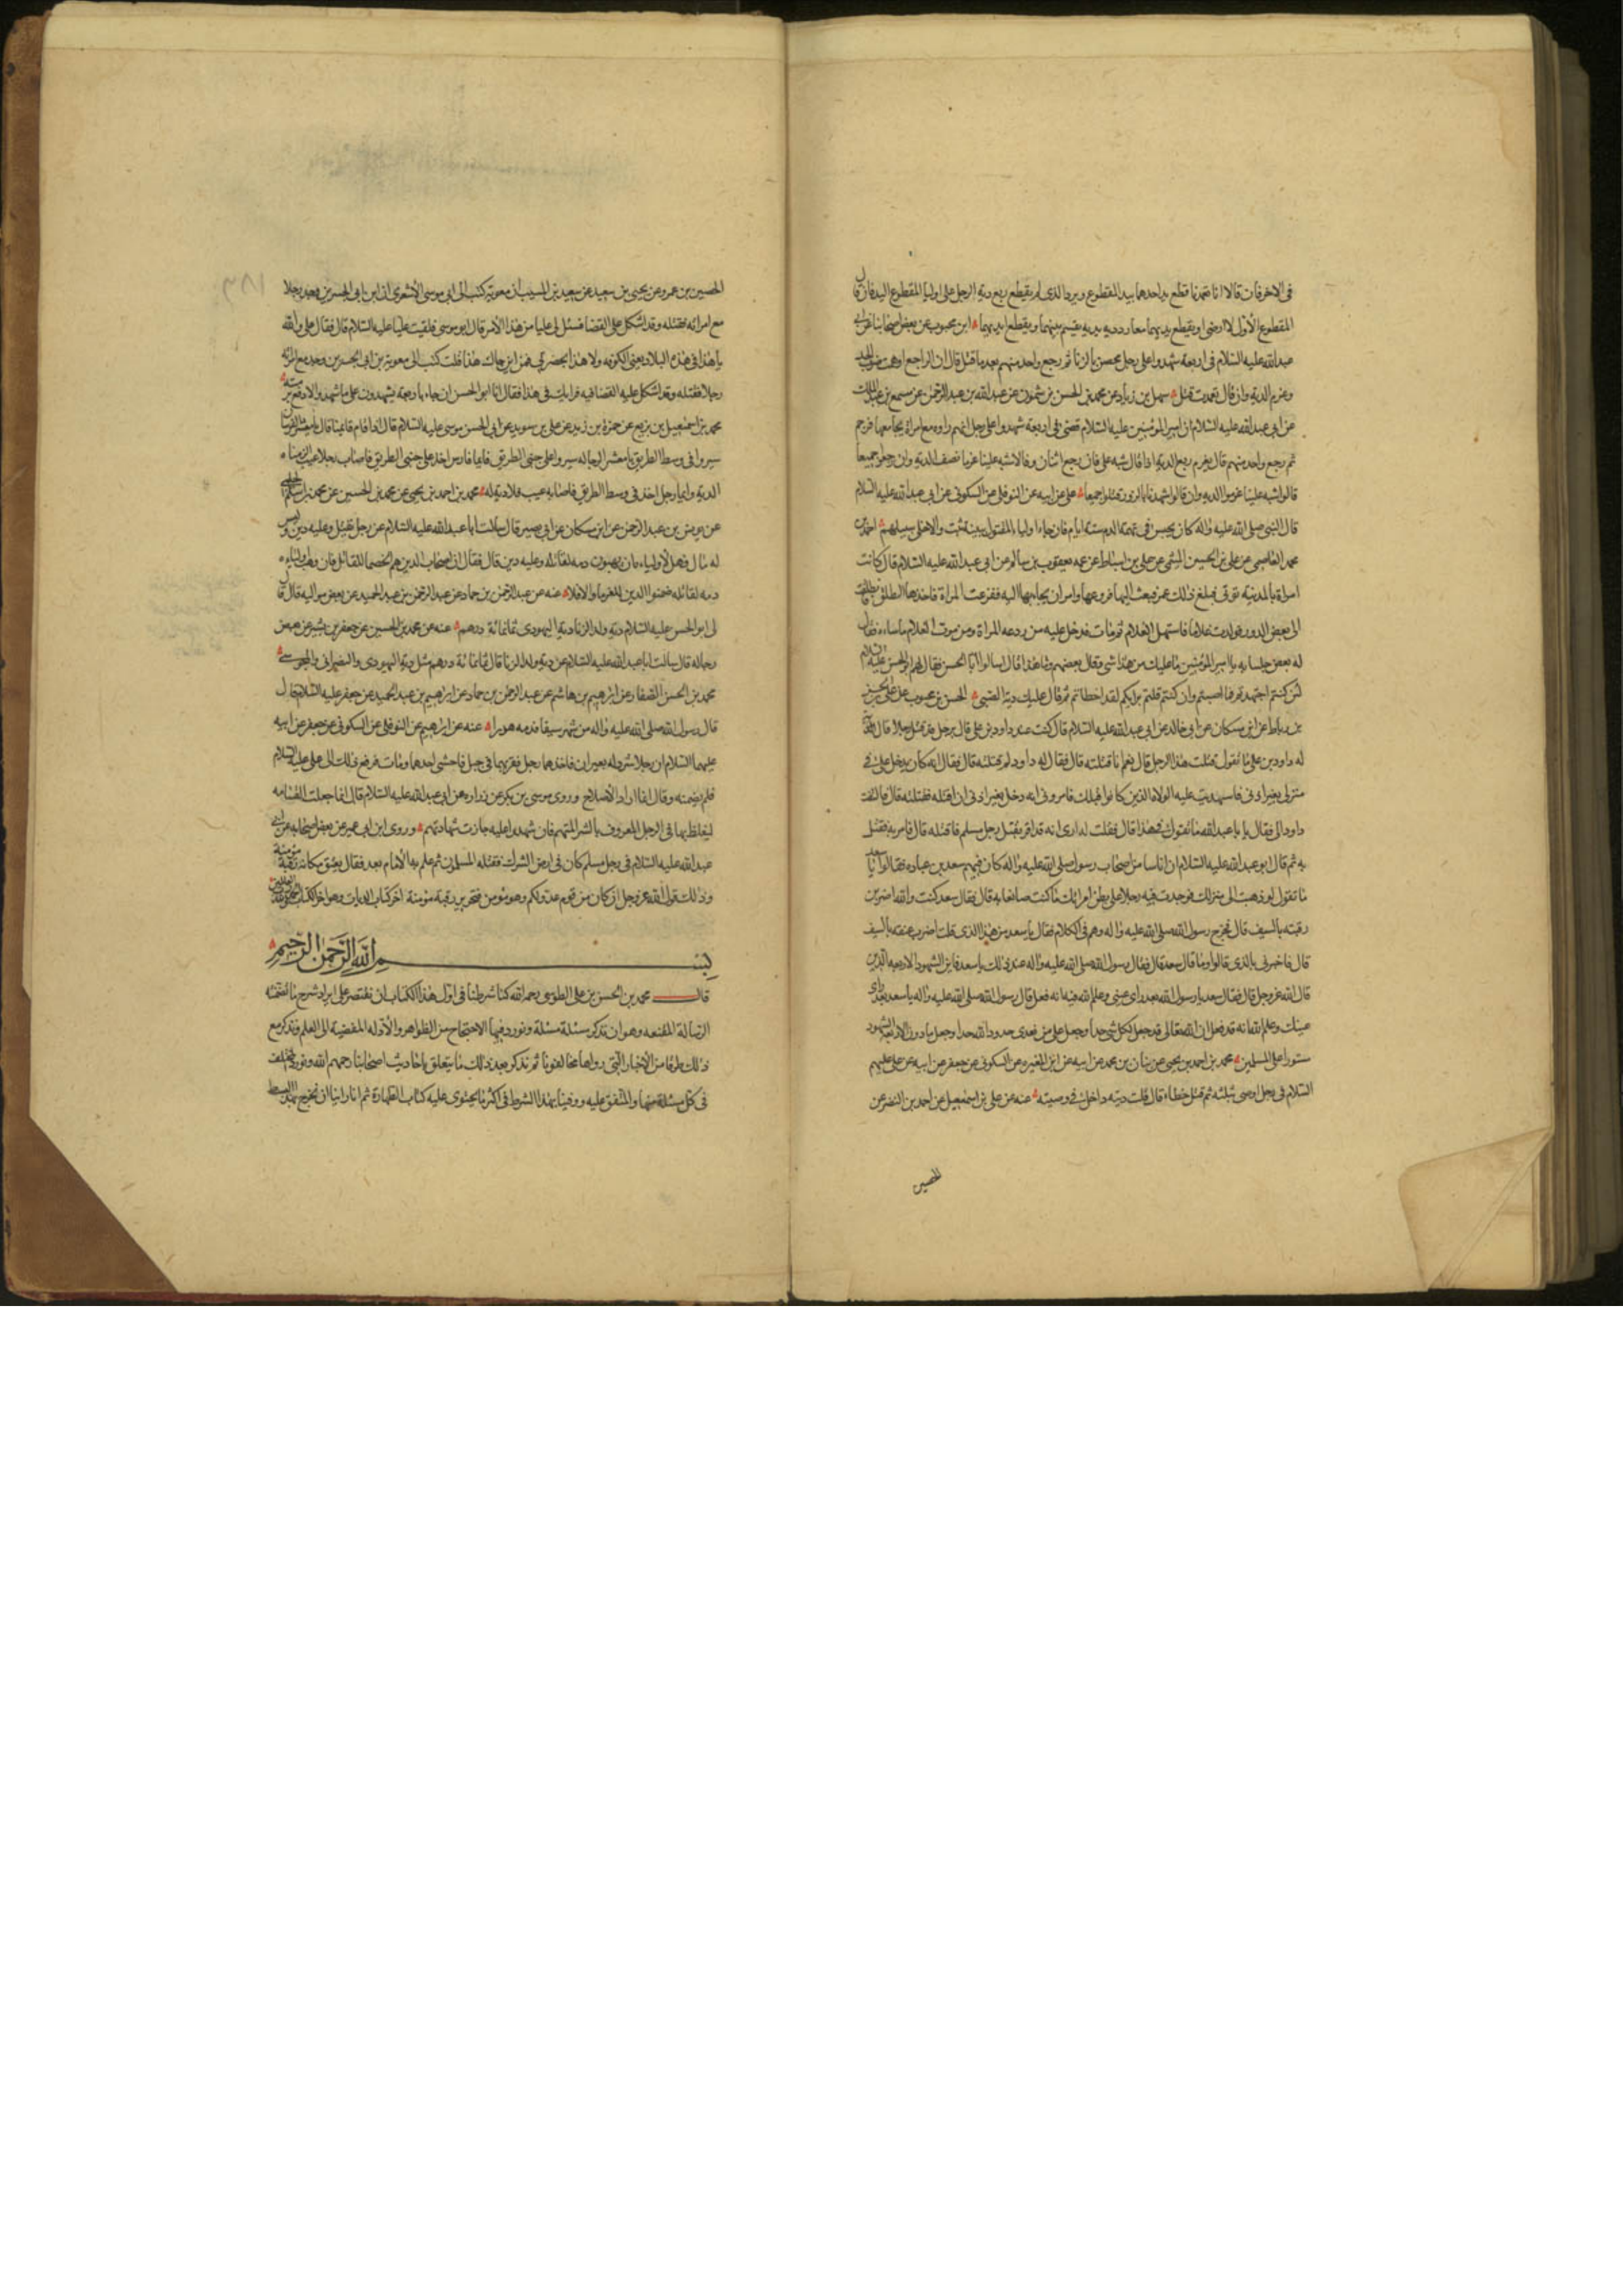 في الاخر فان قالا انا تعمدنا قطع يد احدهما بيد المقطوع ويرد الذي لم يقطع ربع دية الرجل على اوليا المقطوع اليد فان قال
المقطوع الاول لا ارضى او يقطع ايديهما معا رد دية يد يقسم بينهما ويقطع ايديهما ابن محبوب عن بعض اصحابنا عن ابي
عبد الله عليه السلام في اربعة شهدوا على رجل محصن بالزنا ثم رجع واحد منهم بعد ما قتل قال ان قال الراجع اوهمت ضرب الحد
وغرم الدية وان قال تعمدت قتل سهل بن زياد عن محمد بن الحسن بن شمون عن عبد الله بن عبد الرحمن عن مسمع بن عبد الملك
عن ابي عبد الله عليه السلام ان امير المؤمنين عليه السلام قضى في اربعة شهدوا على رجل انهم راوه مع امراة يجامعها فرجم
ثم رجع واحد منهم قال يغرم ربع الدية اذا قال شبه علي فان رجع اثنان وقالا شبه علينا غرما نصف الدية وان رجعوا جميعا
قالوا شبه علينا غرموا الدية وان قالوا شهدنا بالزور قتلوا جميعا علي عن ابيه عن النوفلي عن السكوني عن ابي عبد الله عليه السلام
قال النبي صلى الله عليه واله كان يحبس في تهمة الدم ستة ايام فان جاء اولياء المقتول ببينة ثبت والا خلى سبيلهم احمد بن
محمد العاصمي عن علي بن الحسين الميثمي عن علي بن اسباط عن عمه يعقوب بن سالم عن ابي عبد الله عليه السلام قال كانت
امراة بالمدينة تؤتى فبلغ ذلك عمر فبعث اليها فروعها وامر ان يجاء بها اليه ففزعت المراة فاخذها الطلق فانطلقت
الى بعض الدور فولدت غلاما فاستهل الغلام ثم مات فدخل عليه من روعة المراة ومن موت الغلام ما ساءه فقال
له بعض جلسايه يا امير المؤمنين ما عليك من هذا شي وقال بعضهم وما هذا قال اسالوا ابا الحسن فقال لهم ابو الحسن عليه السلام
لئن كنتم اجتهدتم فما اصبتم وان كنتم قلتم برايكم لقد اخطاتم ثم قال عليك دية الصبي الحسن بن محبوب عن علي بن الحسن
بن رباط عن ابن مسكان عن ابي خالد عن ابي عبد الله عليه السلام قال كنت عند داود بن علي فاتي برجل قد قتل رجلا فقال
له داود بن علي ما تقول قتلت هذا الرجل قال نعم انا قتلته قال فقال له داود لم قتلته قال فقال انه كان يدخل علي في
منزلي بغير اذني فاستعديت عليه الولاة الذين كانوا قبلك فامروني انه دخل بغير اذني ان اقتله فقتلته قال فالتفت
داود الي فقال يا با عبد الله ما تقول في هذا قال فقلت له ارى انه قد اقر بقتل رجل مسلم فاقتله قال فامر به فقتل
به ثم قال ابو عبد الله عليه السلام ان اناسا من اصحاب رسول الله صلى الله عليه واله كان فيهم سعد بن عبادة فقالوا يا سعد
ما تقول لو ذهبت الى منزلك فوجدت فيه رجلا على بطن امراتك ما كنت صانعا به قال فقال سعد كنت والله اضرب
رقبته بالسيف قال فخرج رسول الله صلى الله عليه واله وهم في الكلام فقال يا سعد من هذا الذي قلت اضرب عنقه بالسيف
قال فاخبر بالذي قالوا وما قال سعد قال فقال رسول الله صلى الله عليه واله عند ذلك يا سعد فاين الشهود الاربعة الذين
قال الله عز وجل قال فقال سعد يا رسول الله بعد راي عيني وعلم الله فيه انه قد فعل قال رسول الله صلى الله عليه واله يا سعد بعد راي
عينك وعلم الله انه قد فعل ان الله تعالى قد جعل لكل شي حدا وجعل على من تعدى حدود الله حدا وجعل ما دون الاربعة الشهود
مستورا على المسلمين محمد بن احمد بن يحيى عن بنان بن محمد عن ابيه عن ابن المغيرة عن السكوني عن جعفر عن ابيه عن علي عليهم
السلام في رجل اوصى بثلثه ثم قتل خطاء قال ثلث ديته داخل في وصيته عنه عن علي بن اسمعيل عن احمد بن النضر عن
الحصين
الحصين بن عمرو عن يحيى بن سعيد عن سعيد بن المسيب ان معوية كتب الى ابي موسى الاشعري ان ابن ابي الجسرين وجد رجلا
مع امراته فقتله وقد اشكل علي القضا فسئل لي عليا من هذا الامر قال ابو موسى فلقيت عليا عليه السلام قال فقال علي والله
ما هذا في هذه البلاد يعني الكوفة ولا هذا بحضرتي فمن اين جاك هذا قلت كتب الي معوية ان ابن ابي الجسرين وجد مع امراته
رجلا فقتله وقد اشكل عليه القضا فيه فرايك في هذا فقال انا ابو الحسن ان جاء باربعة يشهدون على ما شهد والا دفع برمته
محمد بن اسمعيل بن بزيع عن حمزة بن زيد عن علي بن سويد عن ابي الحسن موسى عليه السلام قال اذا قام قائمنا قال يا معشر الفرسان
سيروا في وسط الطريق يا معشر الرجالة سيروا على جنبي الطريق فايما فارس اخذ على جنبي الطريق فاصاب رجلا عيب الزمناه
الدية وايما رجل اخذ في وسط الطريق فاصابه عيب فلا دية له محمد بن احمد بن يحيى عن محمد بن الحسين عن محمد بن اسلم الجبلي
عن يونس بن عبد الرحمن عن ابن مسكان عن ابي بصير قال سالت ابا عبد الله عليه السلام عن رجل يقتل وعليه دين وليس
له مال فهل لاولياءه ان يهبوا دمه لقاتله وعليه دين قال فقال ان اصحاب الدين هم الخصما للقاتل فان وهب اولياءه
دمه لقاتله ضمنوا الدين للغرما والا فلا عنه عن عبد الرحمن بن حماد عن عبد الرحمن بن عبد الحميد عن بعض مواليه قال قال
لي ابو الحسن عليه السلام دية ولد الزنا دية اليهودي ثمانمائة درهم عنه عن محمد بن الحسين عن جعفر بن بشير عن بعض
رجاله قال سالت ابا عبد الله عليه السلام عن دية ولد الزنا قال ثمانمائة درهم مثل دية اليهودي والنصراني والمجوسي
محمد بن الحسن الصفار عن ابرهيم بن هاشم عن عبد الرحمن بن حماد عن ابراهيم بن عبد الحميد عن جعفر عليه السلام قال
قال رسول الله صلى الله عليه واله من شهر سيفا فدمه هدر عنه عن ابراهيم عن النوفلي عن السكوني عن جعفر عن ابيه
عليهما السلام ان رجلا شرد له بعيران فاخذهما رجل فقرنهما في حبل فاختنق احدهما ومات فرفع ذلك الى علي عليه السلام
فلم يضمنه وقال انما اراد الاصلاح وروى موسى بن بكر عن زرارة عن ابي عبد الله عليه السلام قال انما جعلت القسامة
ليغلظ بها في الرجل المعروف بالشر المتهم فان شهدوا عليه جازت شهادتهم وروى ابن ابي عمير عن بعض اصحابه عن ابي
عبد الله عليه السلام في رجل مسلم كان في ارض الشرك فقتله المسلمون ثم علم به الامام بعد فقال يعتق مكانه رقبة مؤمنة
وذلك قول الله عز وجل ان كان من قوم عدو لكم وهو مؤمن فتحرير رقبة مؤمنة اخر كتاب الديات وهو اخر الكتاب
بسم الله الرحمن الرحيم
قال محمد بن الحسن بن علي الطوسي رحمه الله كنا شرطنا في اول هذا الكتاب ان نقتصر على ايراد شرح ما تضمنته
الرسالة المقنعة وهو ان نذكر مسئلة مسئلة ونورد فيها الاحتجاج من الظواهر والادلة المفضية الى العلم ونذكر مع
ذلك طرفا من الاخبار التي رواها مخالفونا ثم نذكر بعد ذلك ما يتعلق باحاديث اصحابنا رحمهم الله ونورد المختلف
في كل مسئلة منها والمتفق عليه ووفينا بهذا الشرط في اكثر ما يحتوي عليه كتاب الطهارة ثم انا راينا ان نخرج بهذا البسط